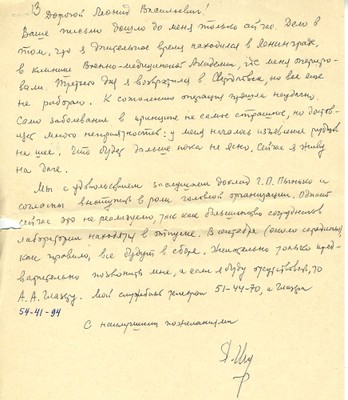 Дорогой Леонид Васильевич!
Ваше письмо дошло до меня только сейчас. Дело в
том, что я длительное время находился в Ленинграде,
в клинике Военно-медицинской Академии, где меня опериро-
вали. Третьего дня я возвратился в Свердловск, но все еще
не работаю. К сожалению операция прошла неудачно.
Само заболевание в принципе не самое страшное, но
много неприятностей: у меня началось изъязвление рубцов
на шее. Что будет дальше пока не ясно. Сейчас я живу
на даче.
Мы с удовольствием заслушаем доклад Г.П.
согласны выступить в роли головной организации. Однако
сейчас это не реализуемо, так как большинство сотрудников
лаборатории находятся в отпуске. В сентябре (около середины)
как правило, все будут в сборе. Желательно только пред-
варительно позвонить мне, а если я буду отсутствовать, то
А.А. Мой служебный телефон 51-44-70, а
54-41-94
С наилучшими пожеланиями